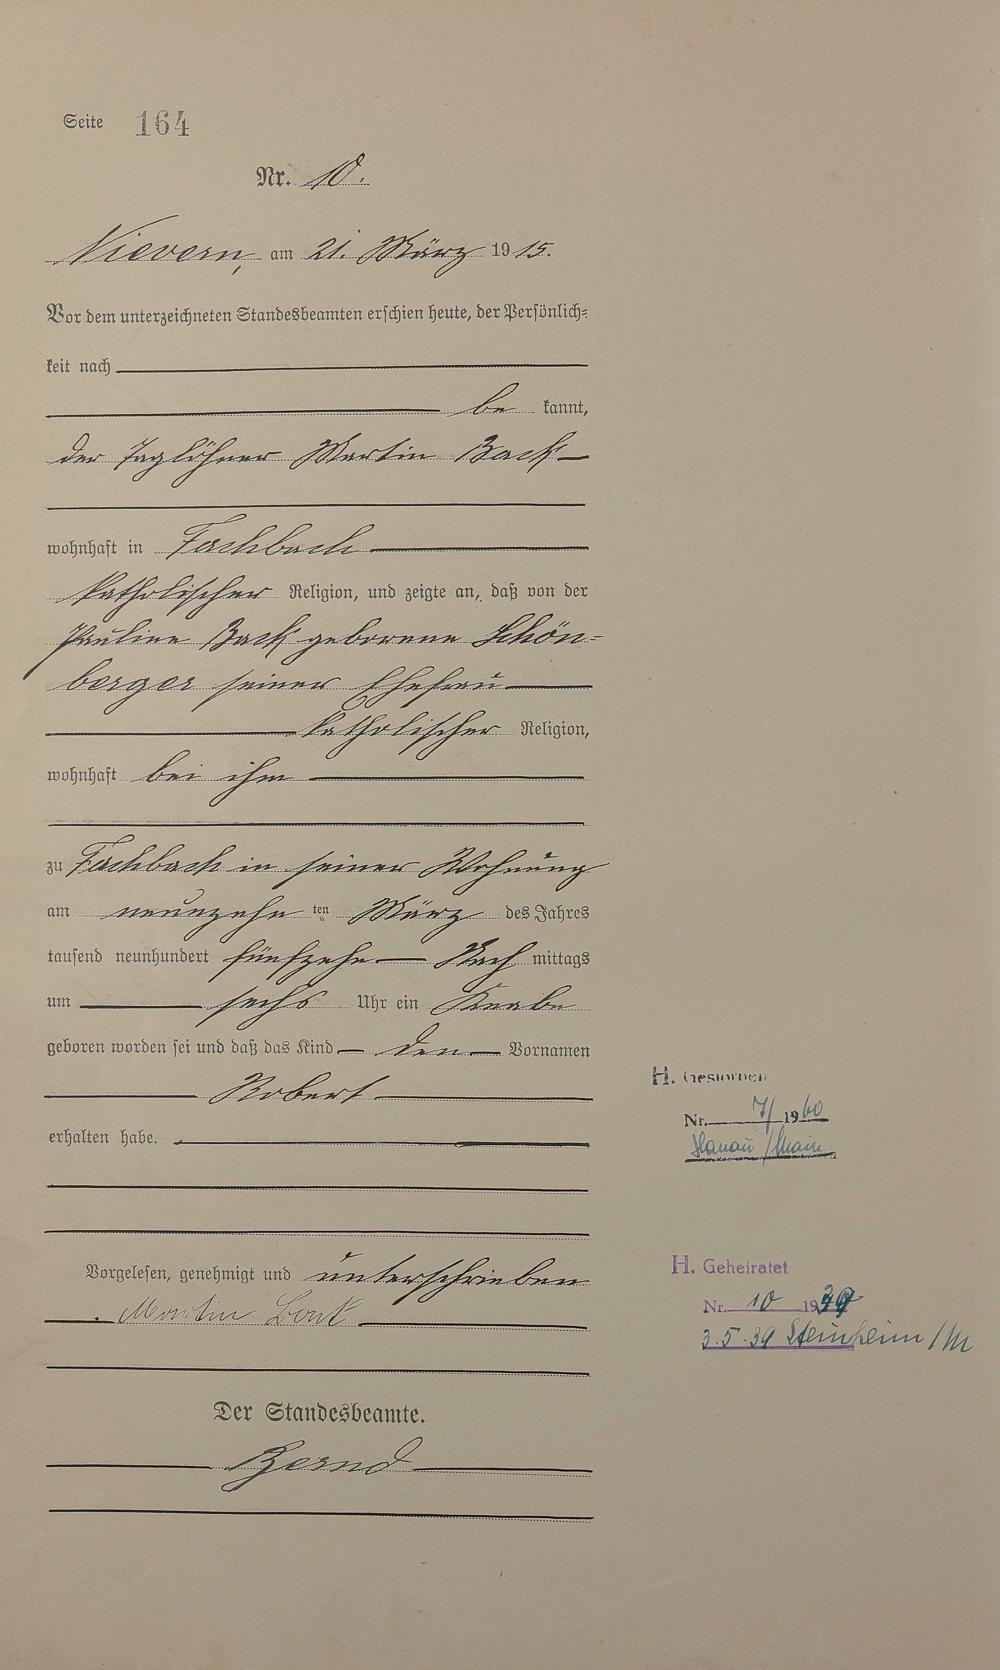 Seite 164
Nr. 10.
Nievern, am 21. März 1915.
Vor dem unterzeichneten Standesbeamten erschien heute, der Persönlich=
keit nach
be kannt,
der Taglöhner Martin Back
wohnhaft in Fachbach
katholischer Religion, und zeigte an, daß von der
Pauline Back geborene Schön=
berger seiner Ehefrau
katholischer Religion,
wohnhaft bei ihm
zu Fachbach in seiner Wohnung
am neunzehn ten März des Jahres
tausend neunhundert fünfzehn Nach mittags
um sechs Uhr ein Knabe
geboren worden sei und daß das Kind den Vornamen
Robert
erhalten habe.
Vorgelesen, genehmigt und unterschrieben
Martin Back
Der Standesbeamte.
Bernd
H. Gestorben
Nr. 7/ 1960
Hanau / Main
H. Geheiratet
Nr. 10 1939
3.5.39 Steinheim / M